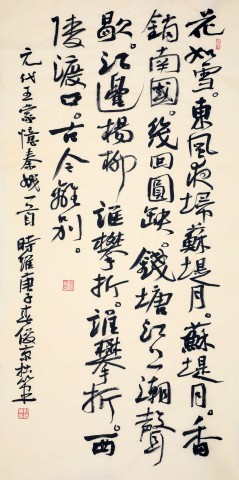 花如雪。東風夜埽蘇堤月。蘇堤月。香
銷南國。幾回圓缺。錢塘江上潮聲
歇。江邊楊柳誰攀折。誰攀折。西
陵渡口。古今離別。
元代王蒙憶秦娥一首 時維庚子春俊京